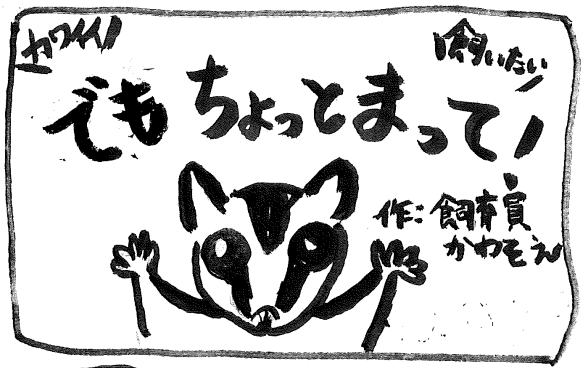 カワイイ!
飼いたい!
でもちょっとまって!
作:飼育員
かわぞえ